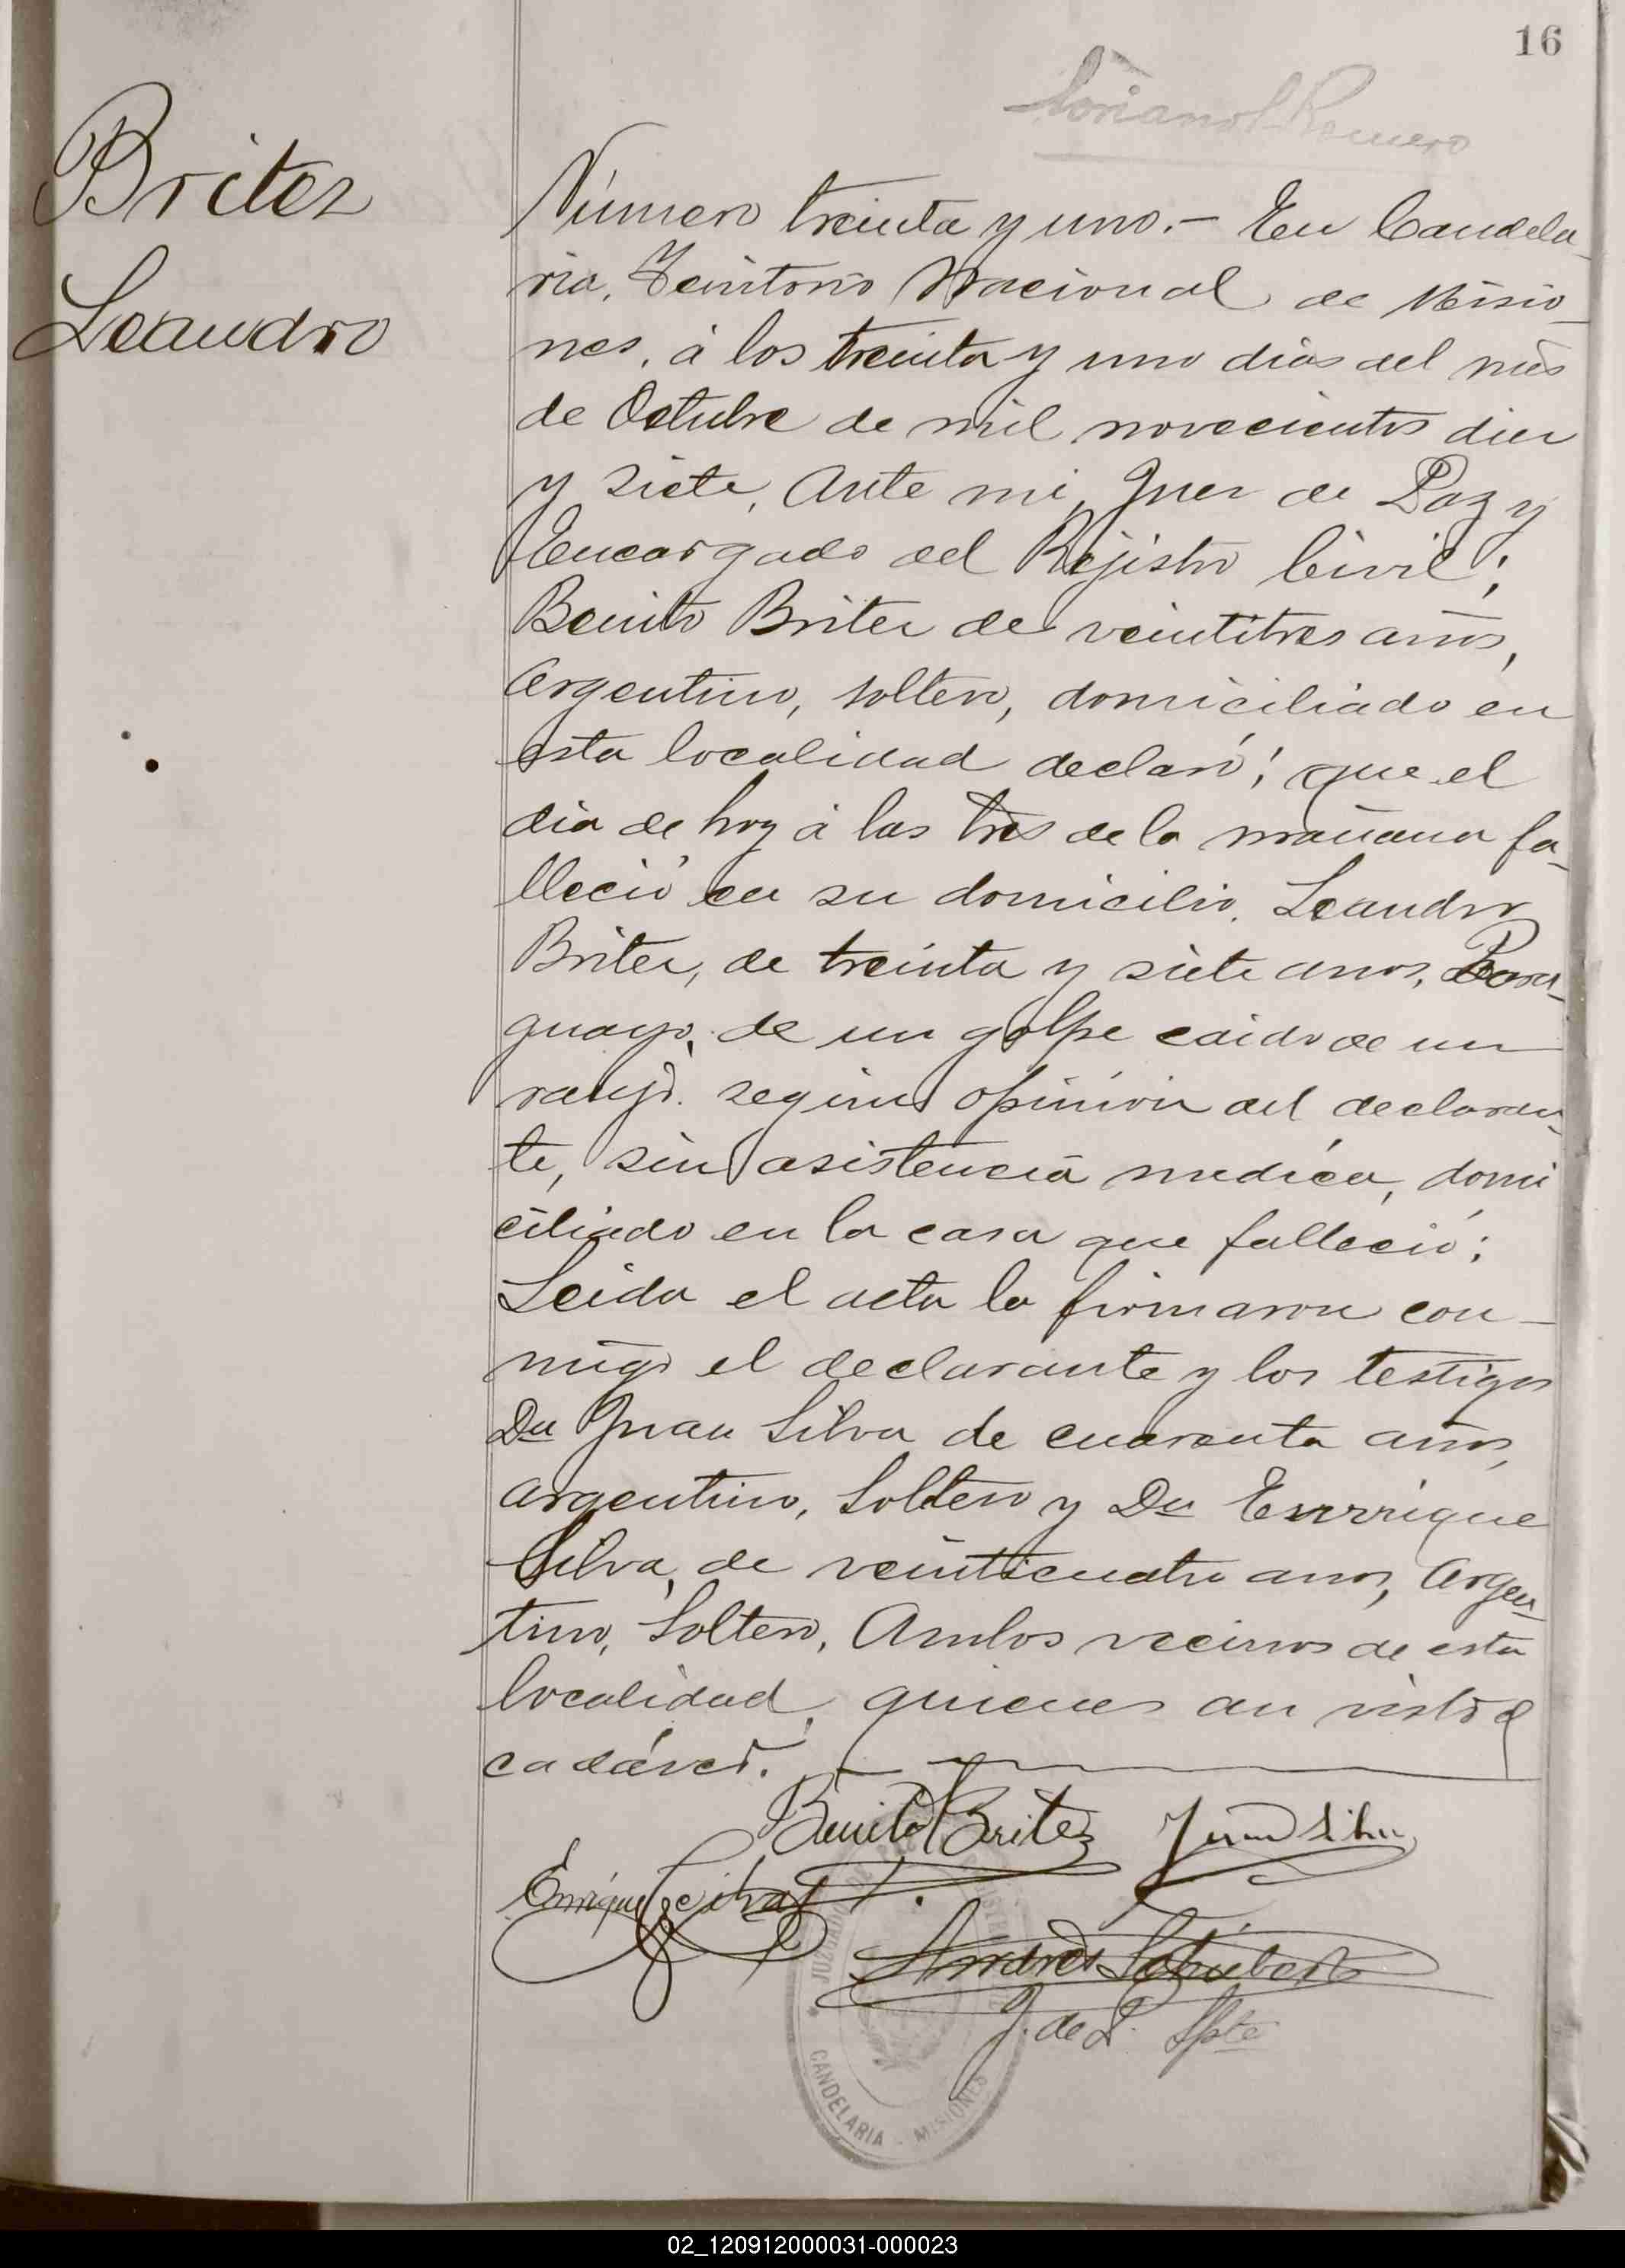 16
Soriano Romero
Britez
Leandro
Número treinta y uno.- En Candela-
ria, Territorio Nacional de Misio-
nes, á los treinta y uno dias del mes
de Octubre de mil novecientos diez
y siete, Ante mi, Juez de Paz y
Encargado del Rejistro Civil;
Benito Britez de veintitres años,
Argentino, soltero, domiciliado en
esta localidad declaró; que el
dia de hoy á las tres de la mañana fa-
lleció en su domicilio, Leandro
Britez, de treinta y siete anos, Para-
guayo, de un golpe caido de un
según opinión del declaran-
te, sin asistencia medica, domi
ciliado en la casa que falleció;
Leida el acta la firmaron con-
migo el declarante y los testigos
Dn Juan Silva de cuarenta años,
argentino, Soltero y Dn Enrrique
Silva, de veinticuatro anos, Argen-
tino, Soltero, Ambos vecinos de esta
localidad, quienes an visto el
cadáver.
Benito Britez Juan Silva
Enrique Silva
Andrés Schubert
J. de P. Spte
JUZGADO DE PAZ
CANDELARIA - MISIONES
02_120912000031-000023